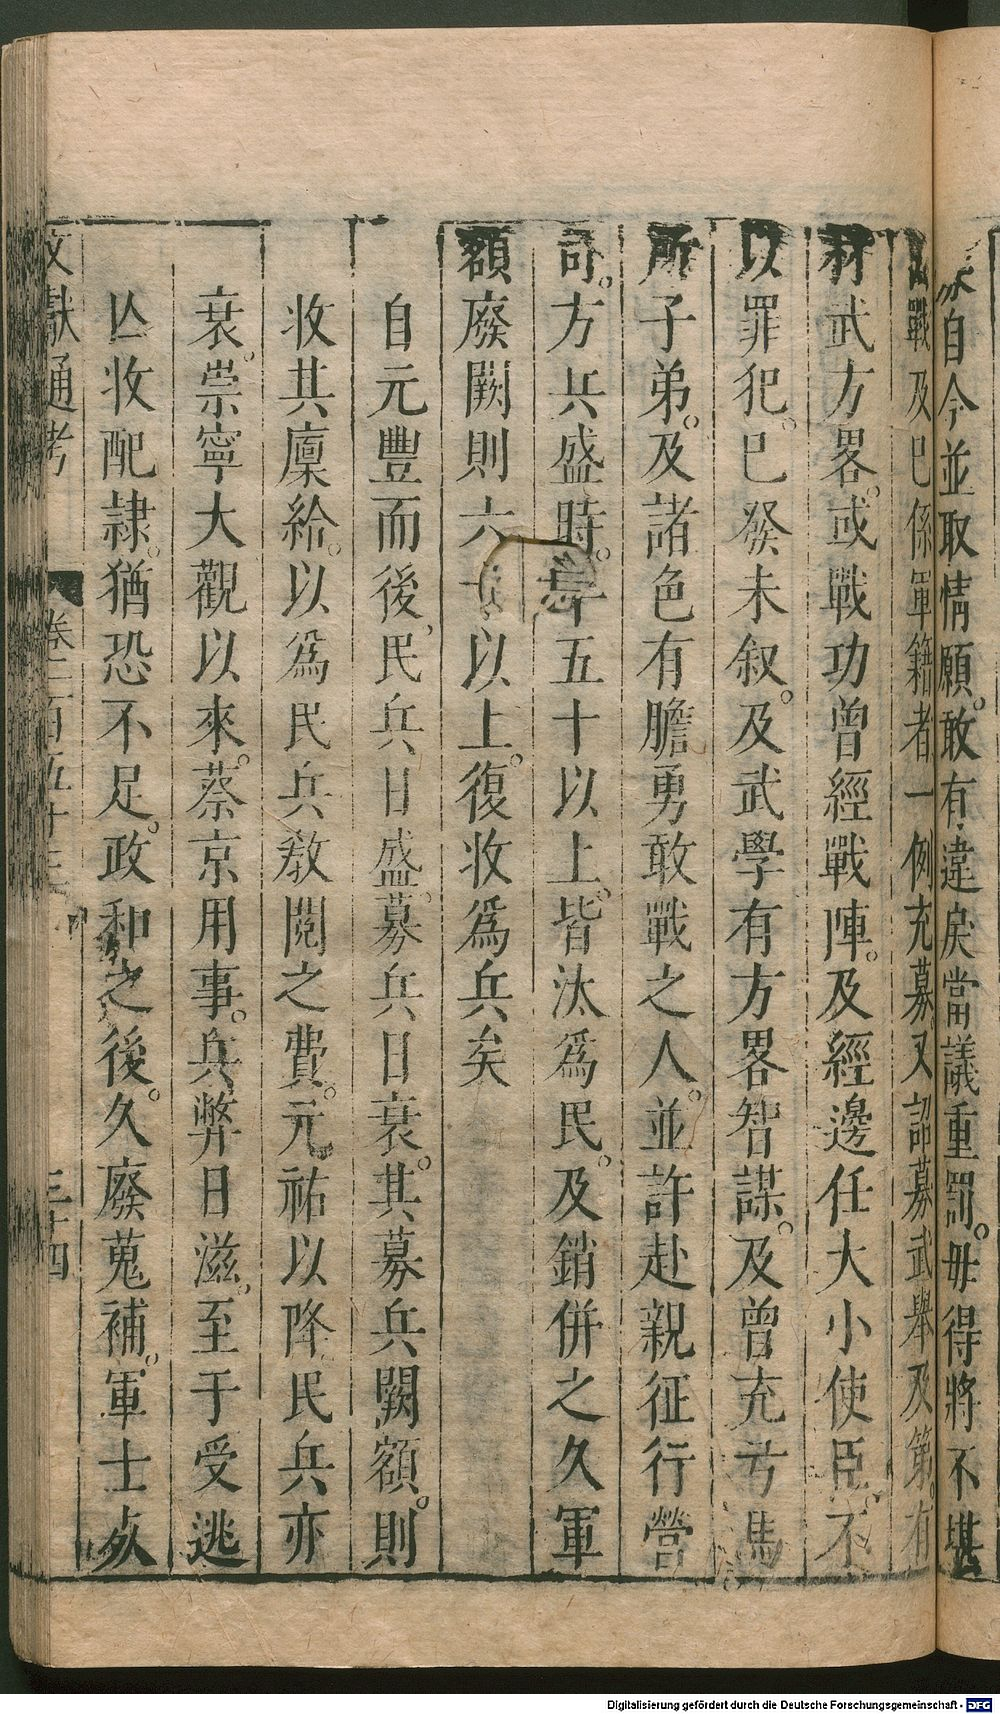 自今並取情願。敢有違戾當議重罰。毋得將不堪
戰及已係軍籍者一例充募又詔募武舉及第。有
材武方畧。或戰功曾經戰陣。及經邊任大小使臣。不
以罪犯。已發未叙。及武學有方畧智謀。及曾充弓馬
所子弟。及諸色有膽勇敢戰之人。並許赴親征行營
司。方兵盛時。年五十以上。皆汰爲民。及銷併之久軍
額廢闕則六十以上。復收爲兵矣
自元豐而後。民兵日盛。募兵日衰。其募兵闕額。則
收其廩給。以爲民兵教閱之費。元祐以降民兵亦
衰。崇寧大觀以來。蔡京用事。兵弊日滋。至于受逃
亾收配隸。猶恐不足。政和之後。久廢蒐補。軍士死
文獻通考
卷一百五十三
三十四
Digitalisierung gefördert durch die Deutsche Forschungsgemeinschaft - DFG